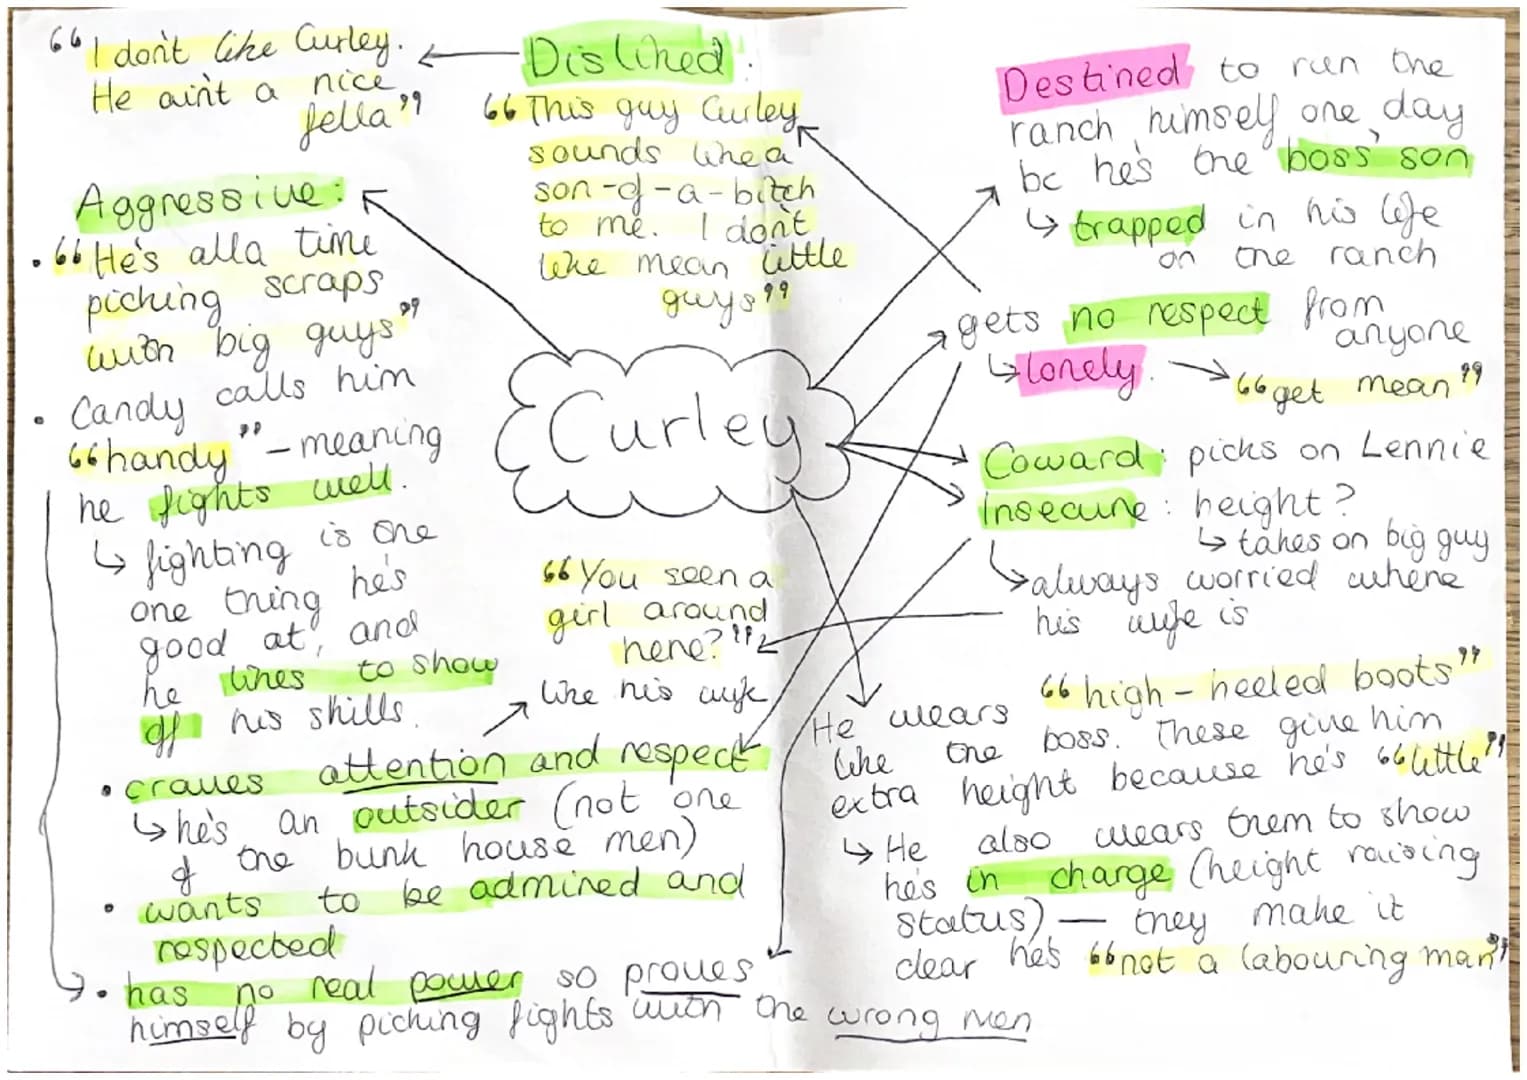 “I don't like Curley.
He ain't a nice
fella”
Disliked.
“This guy Curley
sounds like a
son-of-a-bitch
to me. I don't
like mean little
guys”
Aggressive:
• “He's alla time
picking scraps
with big guys”
• Candy calls him
“handy” – meaning
he fights well.
↳ fighting is one
one thing he's
good at, and
he likes to show
off his skills.
• craves attention and respect
↳ he's an outsider (not one
of the bunk house men)
• wants to be admired and
respected
• has no real power so proves
himself by picking fights with the wrong men
Curley
“You seen a
girl around
here?”
like his wife
Destined to run the
ranch himself one day
bc he's the boss' son
↳ trapped in his life
on the ranch
gets no respect from
anyone
↳ lonely.
“get mean”
Coward: picks on Lennie
Insecure: height?
↳ takes on big guy
↳ always worried where
his wife is
He wears “high-heeled boots”
like the boss. These give him
extra height because he's “little”
↳ He also wears them to show
he's in charge (height raising
status) — they make it
clear he's “not a labouring man”